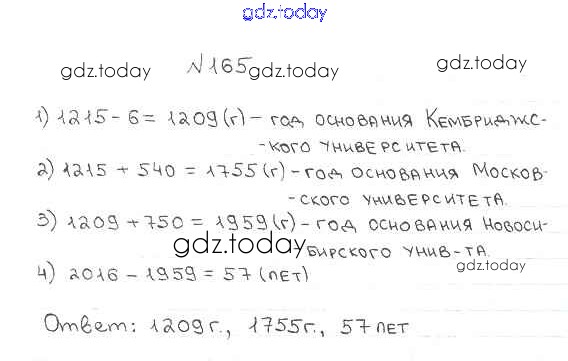 gdz.today
gdz.today №165 gdz.today gdz.today
1) 1215 - 6 = 1209 (г) - год основания Кембриджс-
-кого университета.
2) 1215 + 540 = 1755 (г) - год основания Москов-
-ского университета.
3) 1209 + 750 = 1959 (г) - год основания Новоси-
gdz.today бирского унив-та.
4) 2016 - 1959 = 57 (лет) gdz.today
Ответ: 1209г., 1755г., 57 лет